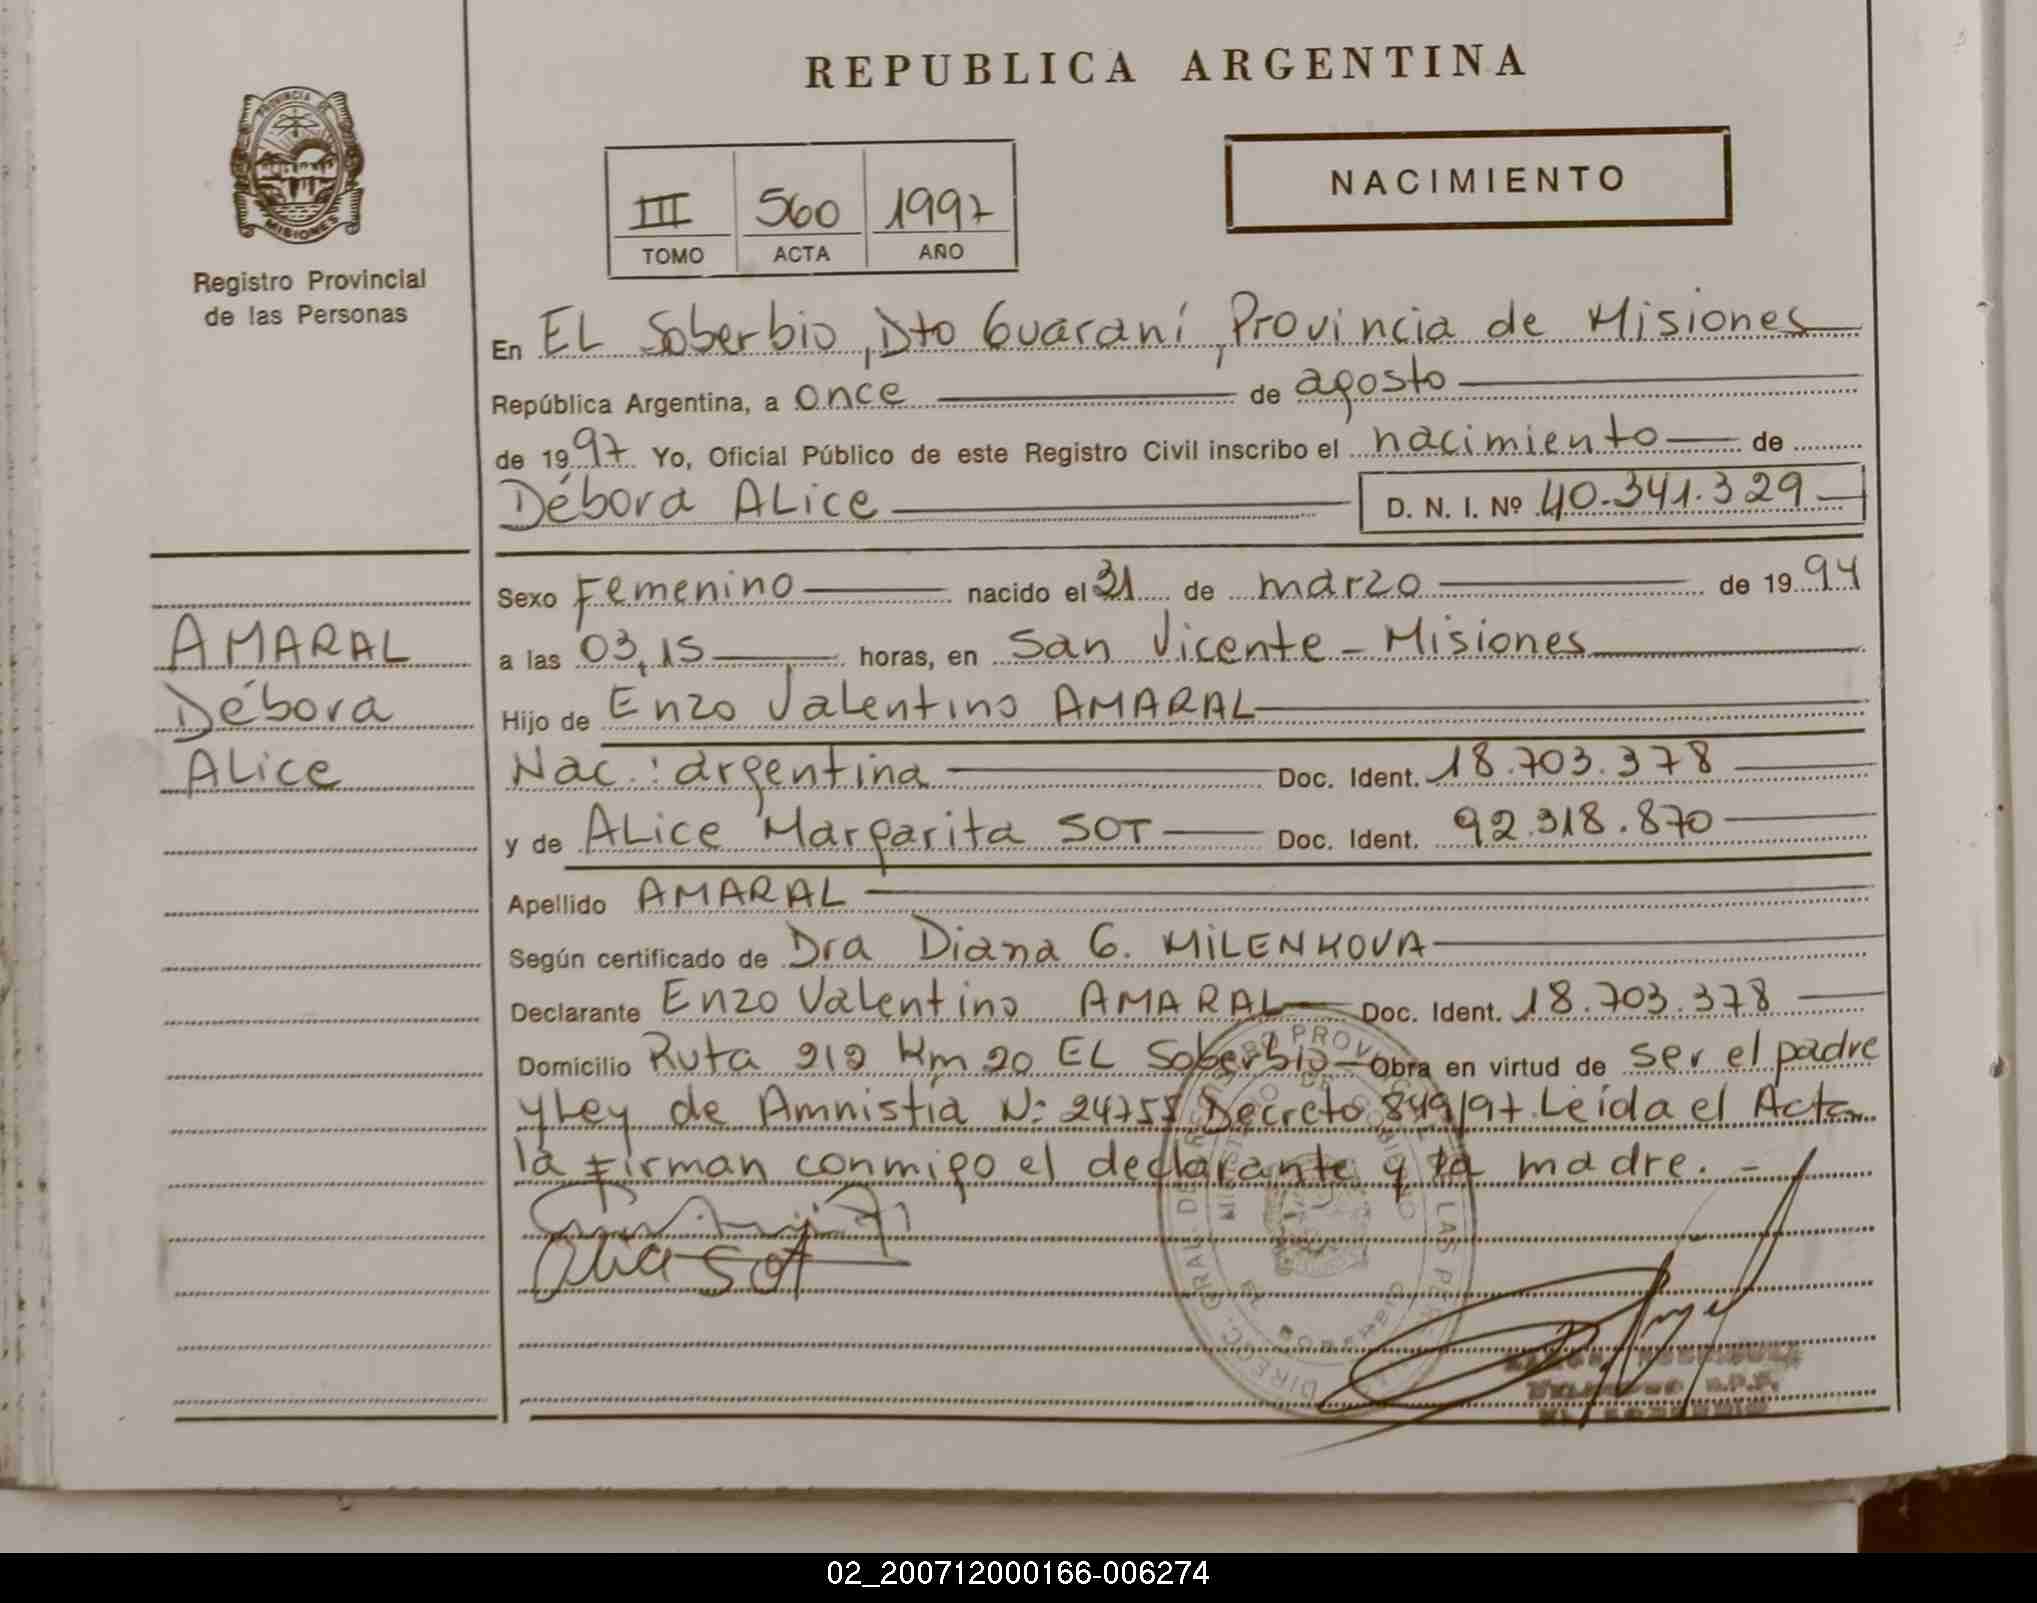 REPUBLICA ARGENTINA
PROVINCIA DE
MISIONES
Registro Provincial
de las Personas
III 560 1997
TOMO ACTA AÑO
NACIMIENTO
En EL Soberbio, Dto Guaraní, Provincia de Misiones
República Argentina, a once de agosto
de 1997 Yo, Oficial Público de este Registro Civil inscribo el nacimiento de
Débora ALice D. N. I. Nº 40.341.329
AMARAL
Débora
ALice
Sexo Femenino nacido el 31 de marzo de 1994
a las 03,15 horas, en San Vicente - Misiones
Hijo de Enzo Valentino AMARAL
Nac.: argentina Doc. Ident. 18.703.378
y de ALice Margarita SOT Doc. Ident. 92.318.870
Apellido AMARAL
Según certificado de Dra Diana G. MILENKOVA
Declarante Enzo Valentino AMARAL Doc. Ident. 18.703.378
Domicilio Ruta 212 Km 20 EL Soberbio Obra en virtud de ser el padre
y Ley de Amnistía N: 24755 Decreto 849/97. Leída el Acta
la firman conmigo el declarante y la madre. -
Alice Sot
02_200712000166-006274